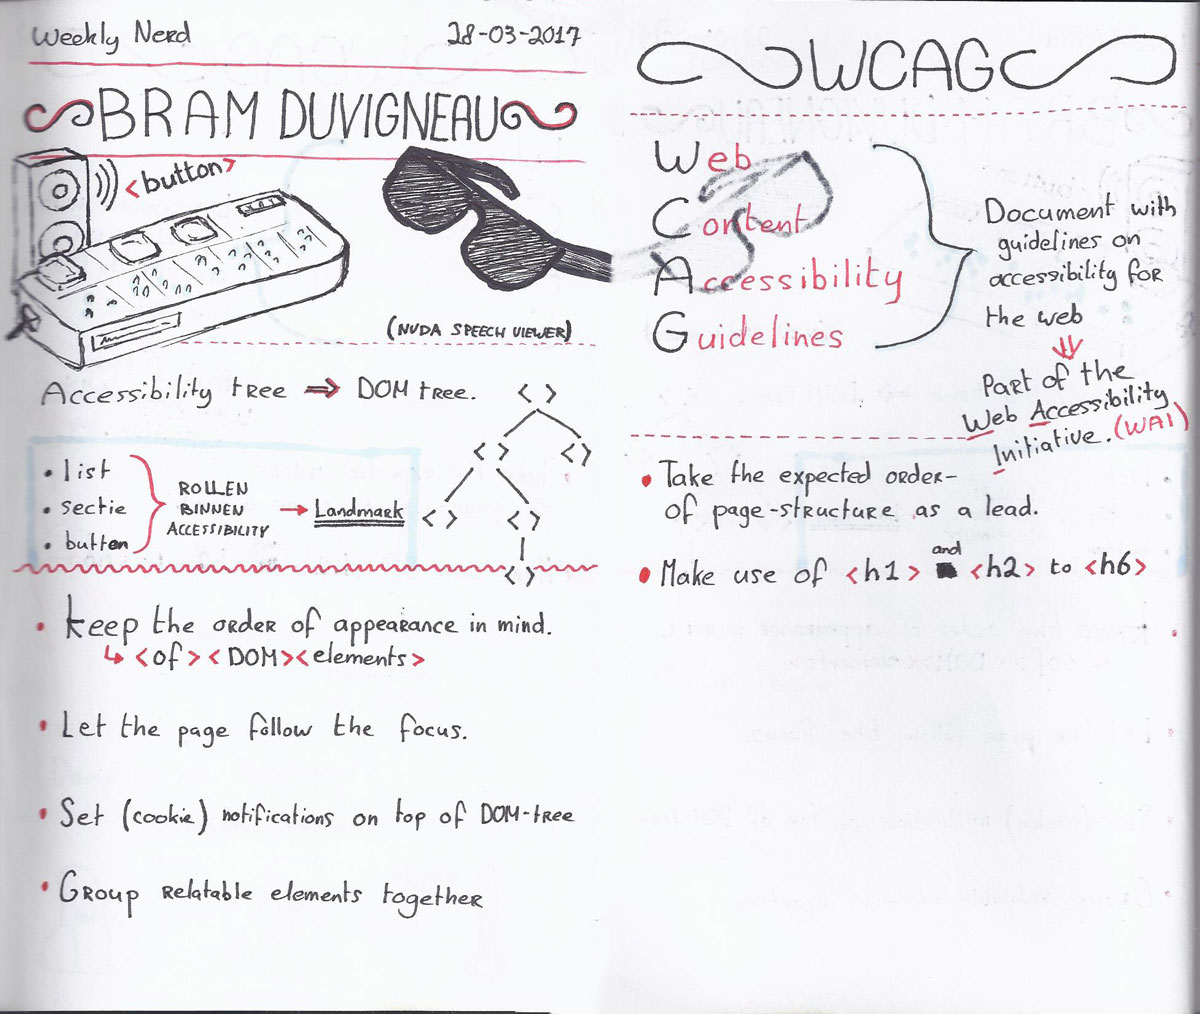 Weekly Nerd 28-03-2017
BRAM DUVIGNEAU
<button>
(NVDA SPEECH VIEWER)
Accessibility tree ⇒ DOM tree.
< >
< > < >
< > < >
< >
• list
• sectie
• button
ROLLEN
BINNEN
ACCESSIBILITY
→ Landmark
• keep the order of appearance in mind.
↳ <of> <DOM> <elements>
• Let the page follow the focus.
• Set (cookie) notifications on top of DOM-tree
• Group relatable elements together
WCAG
Web
Content
Accessibility
Guidelines
Document with
guidelines on
accessibility for
the web
Part of the
Web Accessibility
Initiative. (WAI)
• Take the expected order-
of page-structure as a lead.
• Make use of <h1> and <h2> to <h6>